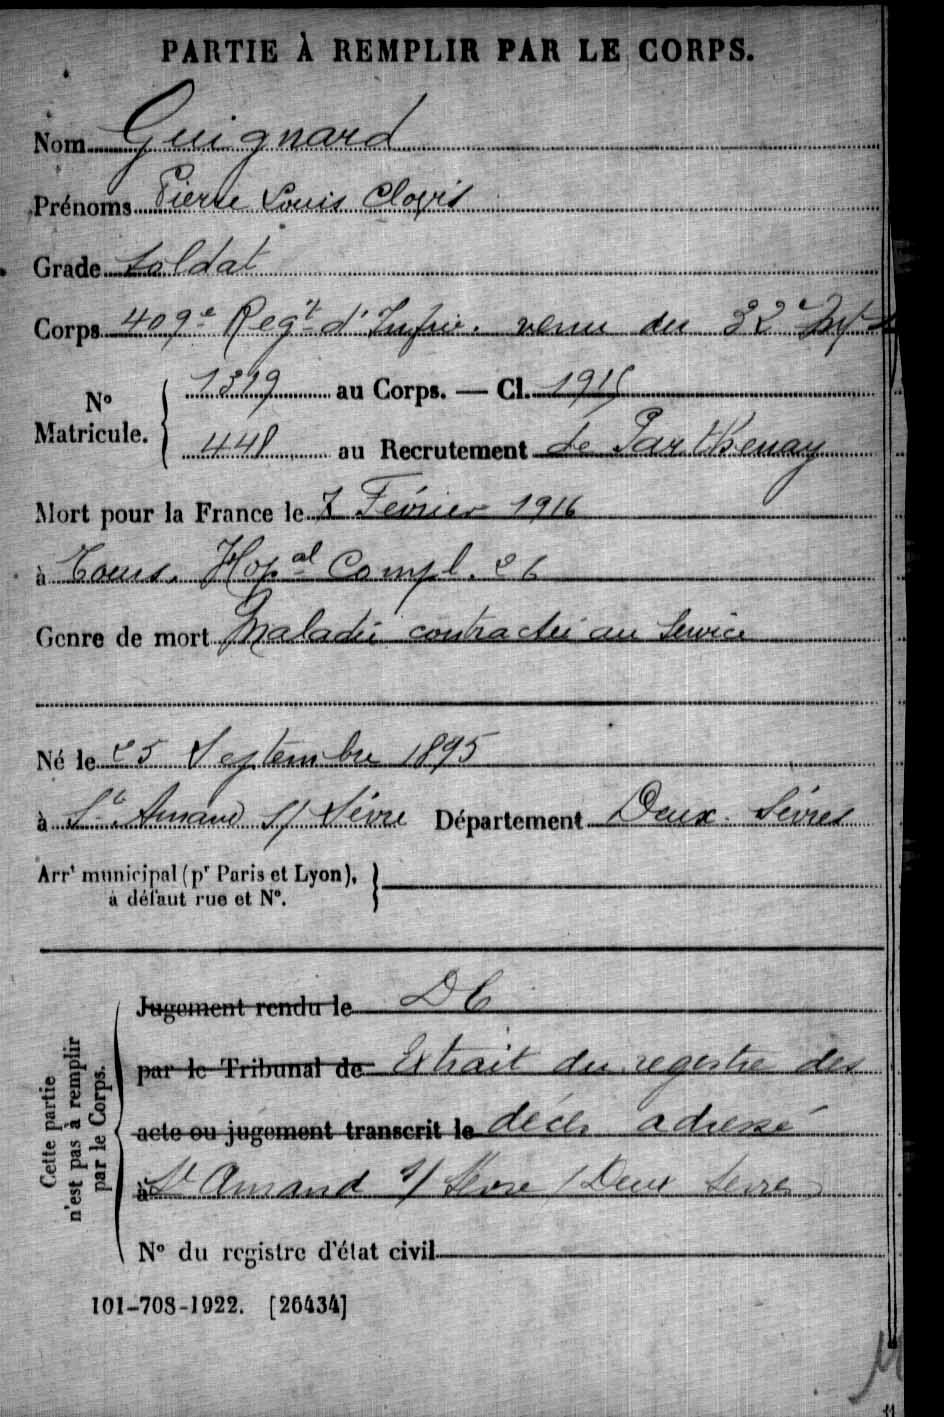 PARTIE À REMPLIR PAR LE CORPS.
Nom Guignard
Prénoms Pierre Louis Clovis
Grade Soldat
Corps 409e Regt d'Infrie. venu du 32e Inf
N° Matricule. { 1319 au Corps. — Cl. 1915
448 au Recrutement de Parthenay
Mort pour la France le 7 Février 1916
à Tours. Hopal Compl. 26
Genre de mort Maladie contractée au Service
Né le 25 Septembre 1895
à St. Amand S/ Sèvre Département Deux. Sèvres
Arrt municipal (pr Paris et Lyon),
à défaut rue et N°.
Cette partie n'est pas à remplir par le Corps.
Jugement rendu le DC
par le Tribunal de Extrait du registre des
acte ou jugement transcrit le décès adressé
à St Amand s/ Sèvre (Deux Sevres)
N° du registre d'état civil
101-708-1922. [26434]